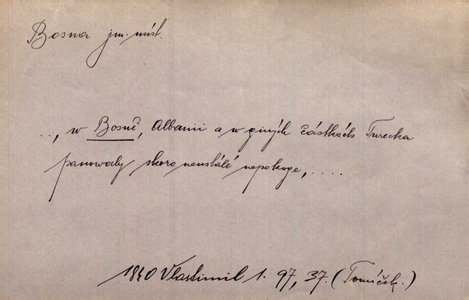 Bosna jm. míst.
..., w Bosně, Albanii a w giných částkách Turecka
panowaly skoro neustálé nepokoge, ....
1840 Vlastimil 1. 97, 37. (Tomíček.)